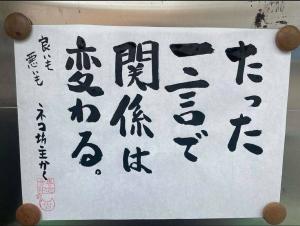 たった
一言で
関係は
変わる。
良いも
悪いも
ネコ坊主かく